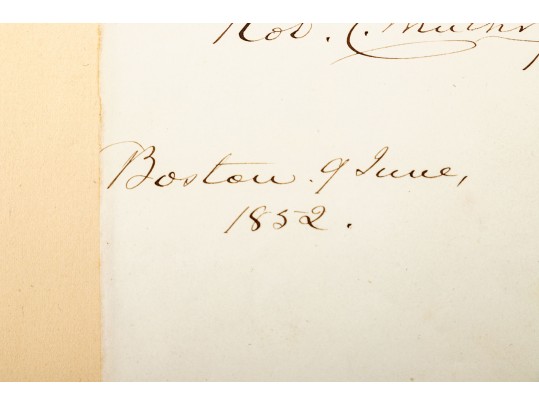 Rob. C.
Boston. 9 June,
1852.